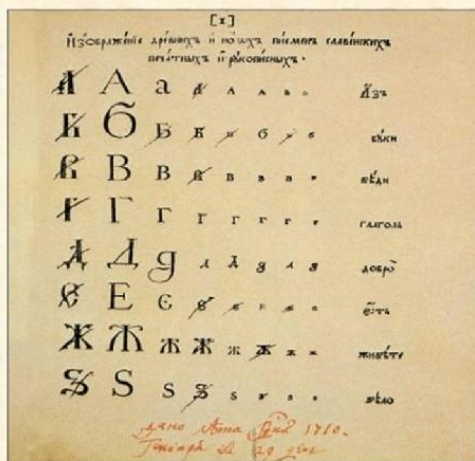 [х]
И҆зѡбраже́нїе дре́внихъ и҆ но́выхъ пи́сменъ славе́нскихъ
печа́тныхъ и҆ рꙋкопи́сныхъ.
А А а а а а а а А҆́зъ
Б Б Б Б Б б б б бꙋ́ки
В В В В В в в в вѣ́ди
Г Г Г Г г г г г глаго́ль
Д Д д д д д д д добро̀
Є Е Є е е е е е є҆́сть
Ж Ж Ж Ж ж ж ж ж живѣ́те
Ѕ Ѕ Ѕ Ѕ ѕ ѕ ѕ ѕ ѕѣлѡ̀
дано лѣта 1710.
Генваря 29 день